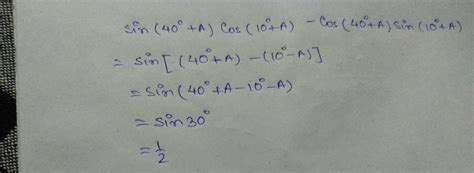 sin(40°+A) Cos(10°+A) - Cos(40°+A) sin(10°+A)
= sin[(40°+A) - (10°-A)]
= sin(40°+A-10°-A)
= sin 30°
= 1/2